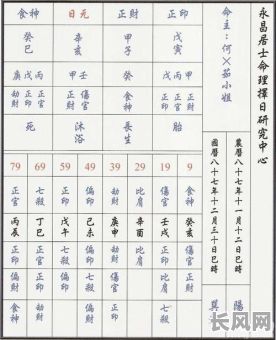 永昌居士命理擇日研究中心
命主：何×茹小姐
農曆八十七年十一月十二日巳時
國曆八十七年十二月三十日巳時
陽
巽
食神 日元 正財 正印
癸巳 辛亥 甲子 戊寅
庚戊丙 甲壬 癸 戊丙甲
劫財 正印 正官 正財 傷官 食神 正印 正官 正財
死 沐浴 長生 胎
79 69 59 49 39 29 19 9
正官 七殺 正印 偏印 劫財 比肩 傷官 食神
丙辰 丁巳 戊午 己未 庚申 辛酉 壬戌 癸亥
正印 正官 七殺 偏印 劫財 比肩 正印 傷官
偏財 正印 偏印 七殺 傷官 比肩 正財
食神 劫財 偏財 正印 七殺
长风网